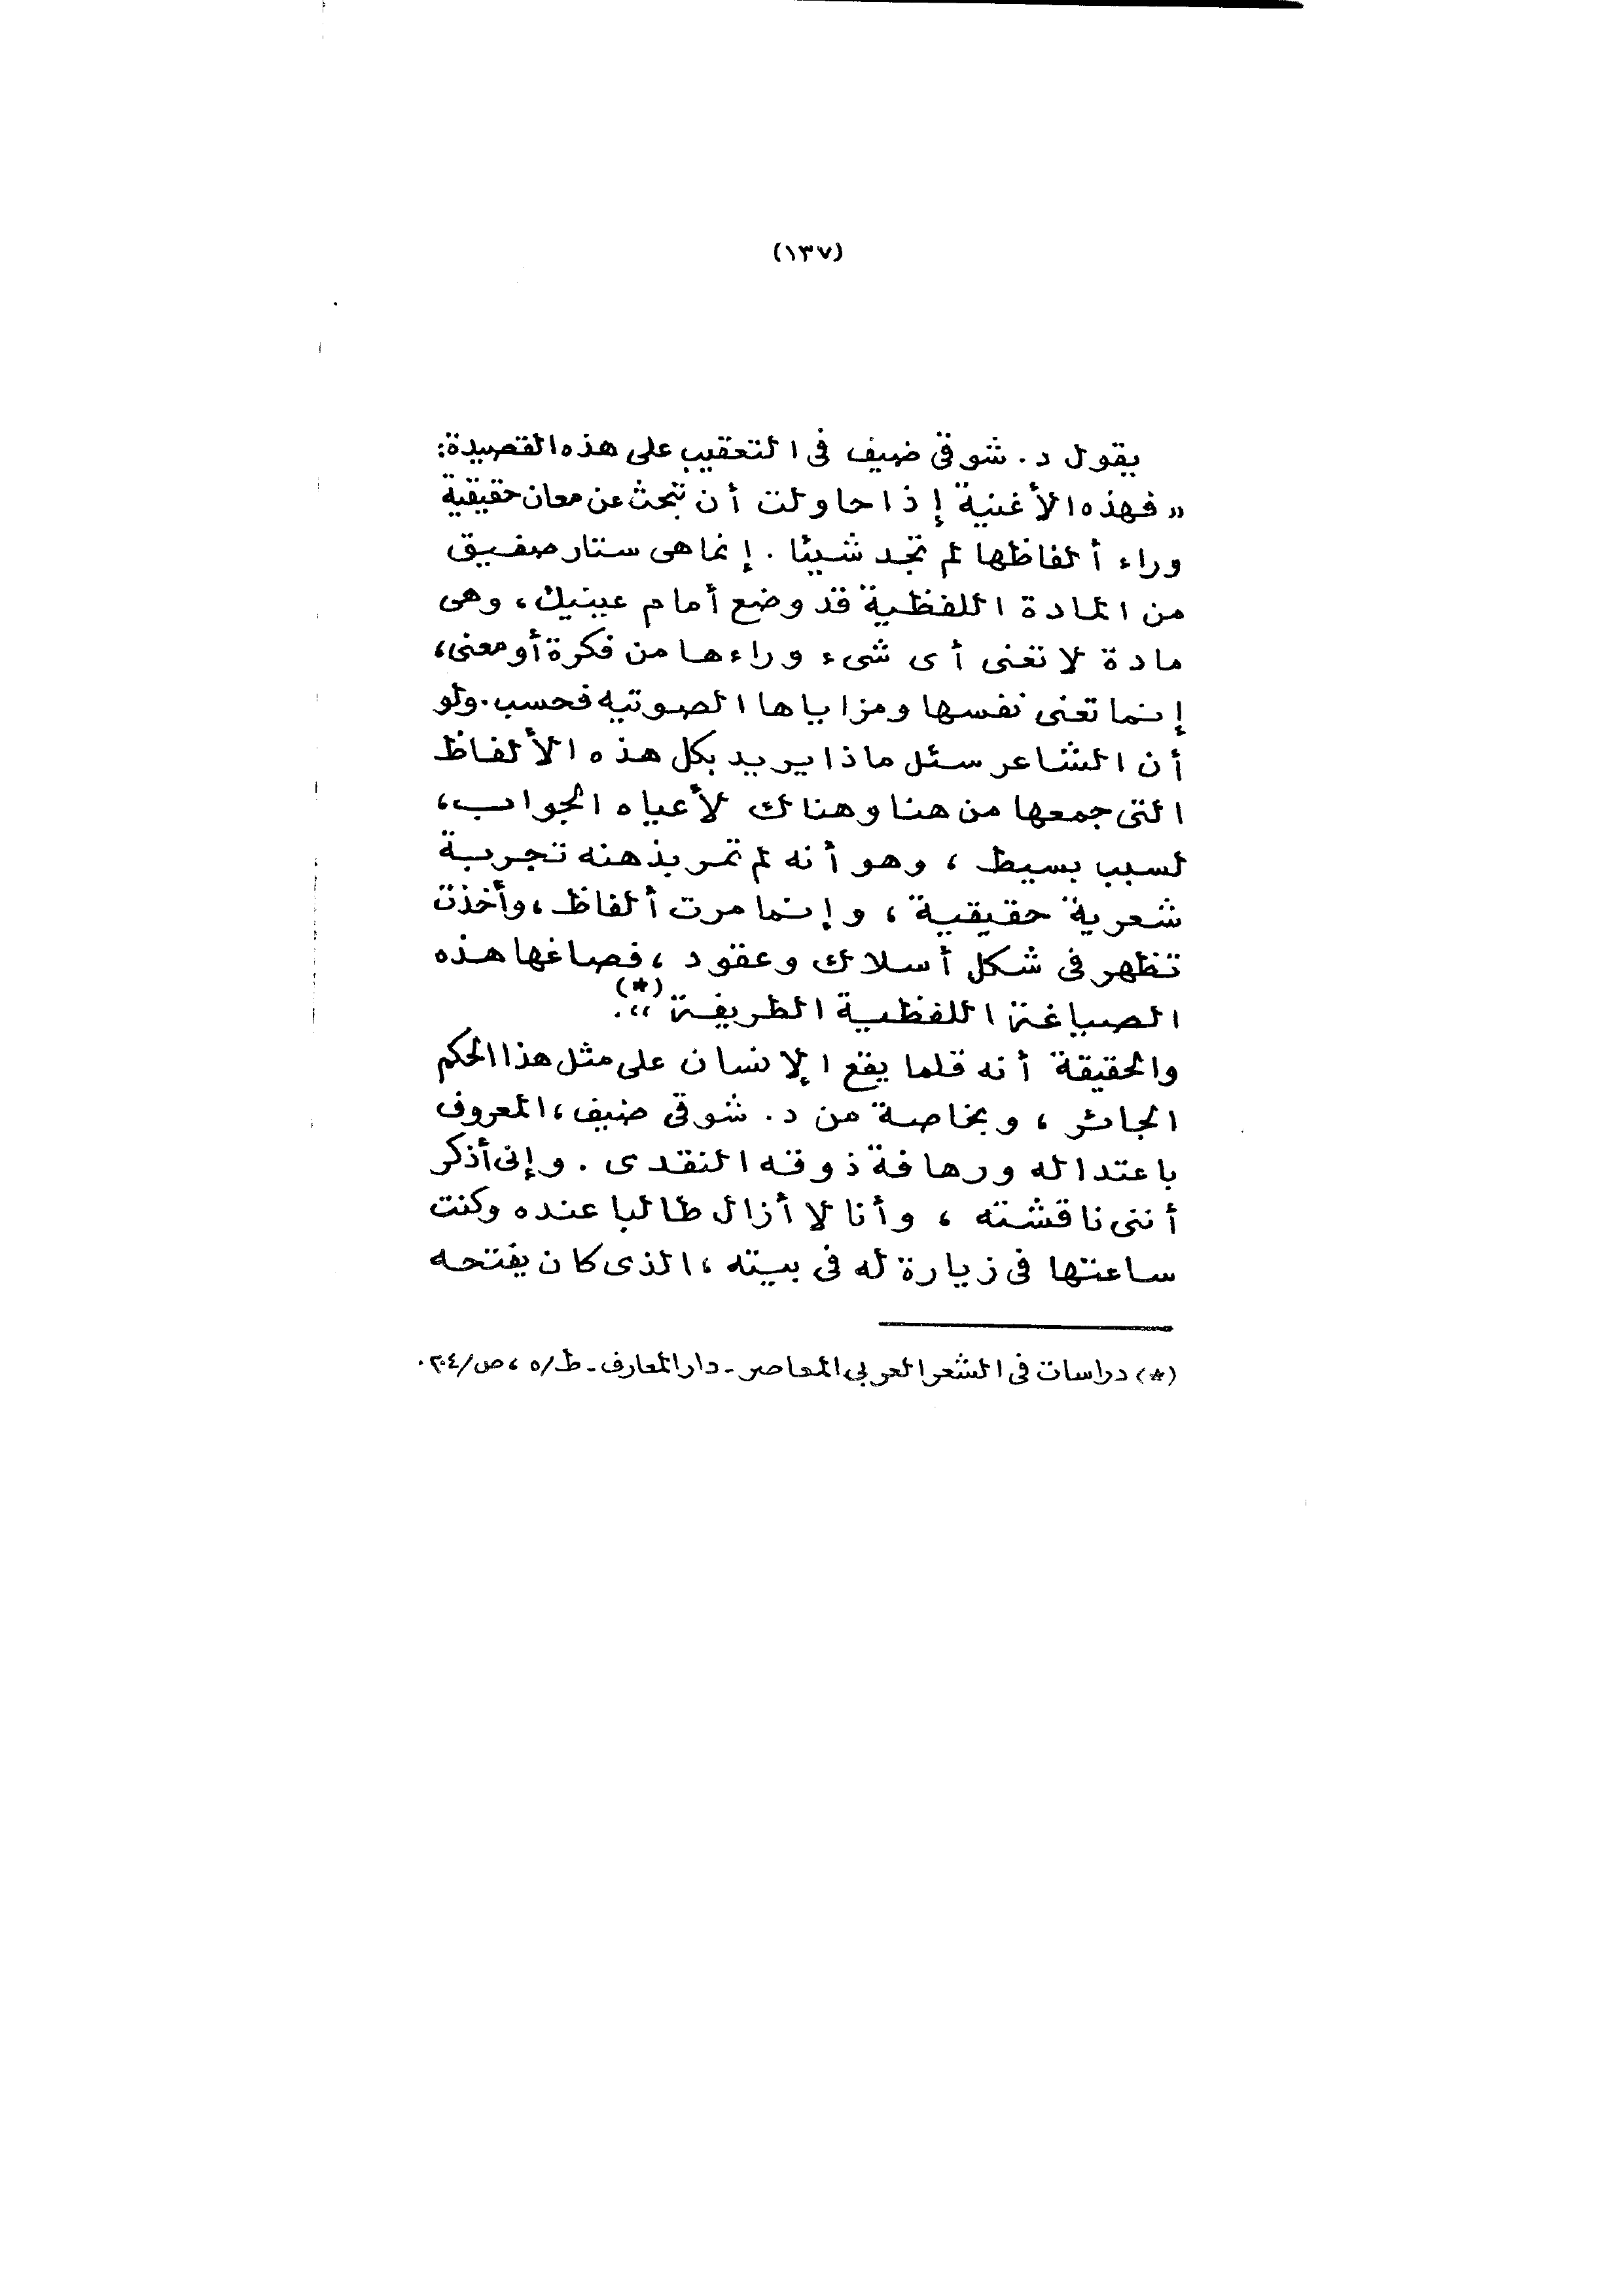 (١٣٧)
يقول د. شوقى ضيف فى التعقيب على هذه القصيدة:
« فهذه الأغنية إذا حاولت أن تبحث عن معان حقيقية
وراء ألفاظها لم تجد شيئا . إنما هى ستار صفيق
من المادة اللفظية قد وضع أمام عينيك، وهى
مادة لا تعنى أى شىء وراءها من فكرة أو معنى،
إنما تعنى نفسها ومزاياها الصوتيه فحسب. ولو
أن الشاعر سئل ماذا يريد بكل هذه الألفاظ
التى جمعها من هنا وهناك لأعياه الجواب،
لسبب بسيط ، وهو أنه لم تمر بذهنه تجربة
شعرية حقيقية ، وإنما مرت ألفاظ ، وأخذت
تظهر فى شكل أسلاك وعقود ، فصاغها هذه
الصياغة اللفظية الطريفة »(*).
والحقيقة أنه قلما يقع الإنسان على مثل هذا الحكم
الجائر ، وبخاصة من د. شوقى ضيف ، المعروف
باعتداله ورهافة ذوقه النقدى . وإنى أذكر
أننى ناقشته ، وأنا لا أزال طالبا عنده وكنت
ساعتها فى زيارة له فى بيته ، الذى كان يفتحه
(*) دراسات فى الشعر العربى المعاصر - دار المعارف - ط/٥ ، ص/٢٠٤.